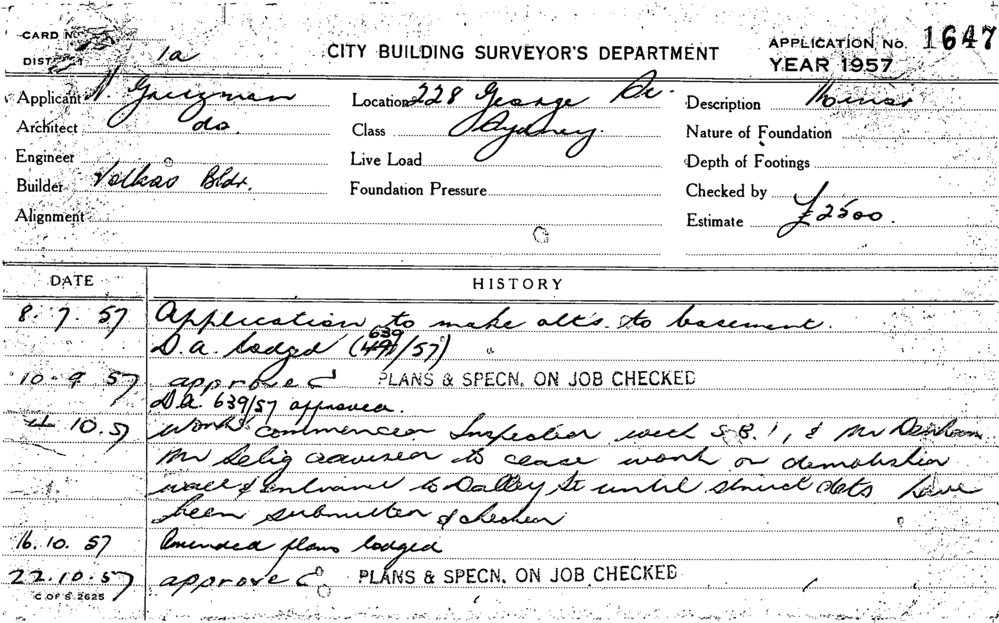 CARD No.
DISTRICT 1a
CITY BUILDING SURVEYOR'S DEPARTMENT
APPLICATION No. 1647
YEAR 1957
Applicant N. Guzman
Location 228 George St.
Description Minor
Architect do.
Class Sydney.
Nature of Foundation
Engineer
Live Load
Depth of Footings
Builder Volkas Bldr.
Foundation Pressure
Checked by
Alignment
Estimate £2500.
DATE HISTORY
8. 7. 57 Application to make alt's. to basement.
D.A. lodged (639/57)
10-9 57 approved PLANS & SPECN. ON JOB CHECKED
D.A. 639/57 approved.
4 10.57 Work commenced Inspection with S.B.I, & Mr Denham
Mr Selig advised to cease work on demolition
wall & entrance to Dalley St until struct dets have
been submitted & checked
16.10.57 Amended plans lodged
22.10.57 approved PLANS & SPECN. ON JOB CHECKED
C OF S 2625